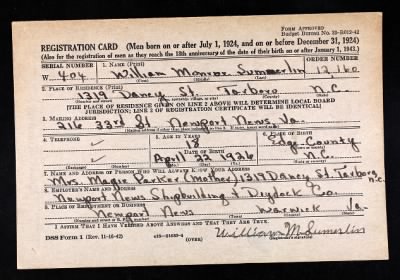 FORM APPROVED
Budget Bureau No. 33-R012-42
REGISTRATION CARD (Men born on or after July 1, 1924, and on or before December 31, 1924)
(Also for the registration of men as they reach the 18th anniversary of the date of their birth on or after January 1, 1943.)
SERIAL NUMBER 1. NAME (Print) ORDER NUMBER
W 404 William Monroe Summerlin 12160
(First) (Middle) (Last)
2. PLACE OF RESIDENCE (Print)
1319 Dancy St. Tarboro N.C.
[THE PLACE OF RESIDENCE GIVEN ON LINE 2 ABOVE WILL DETERMINE LOCAL BOARD
JURISDICTION; LINE 2 OF REGISTRATION CERTIFICATE WILL BE IDENTICAL]
3. MAILING ADDRESS
216 33rd St Newport News Va.
4. TELEPHONE 5. AGE IN YEARS 6. PLACE OF BIRTH
18 Edge. County
DATE OF BIRTH
April 22 1926 N.C.
7. NAME AND ADDRESS OF PERSON WHO WILL ALWAYS KNOW YOUR ADDRESS
Mrs. Magie Parker (Mother) 1319 Dancy St. Tarboro N.C.
8. EMPLOYER'S NAME AND ADDRESS
Newport News Shipbuilding & Drydock Co.
9. PLACE OF EMPLOYMENT OR BUSINESS
Newport News Warwick Va
I AFFIRM THAT I HAVE VERIFIED ABOVE ANSWERS AND THAT THEY ARE TRUE.
DSS Form 1 (Rev. 11-16-42) (OVER) William M Sumerlin